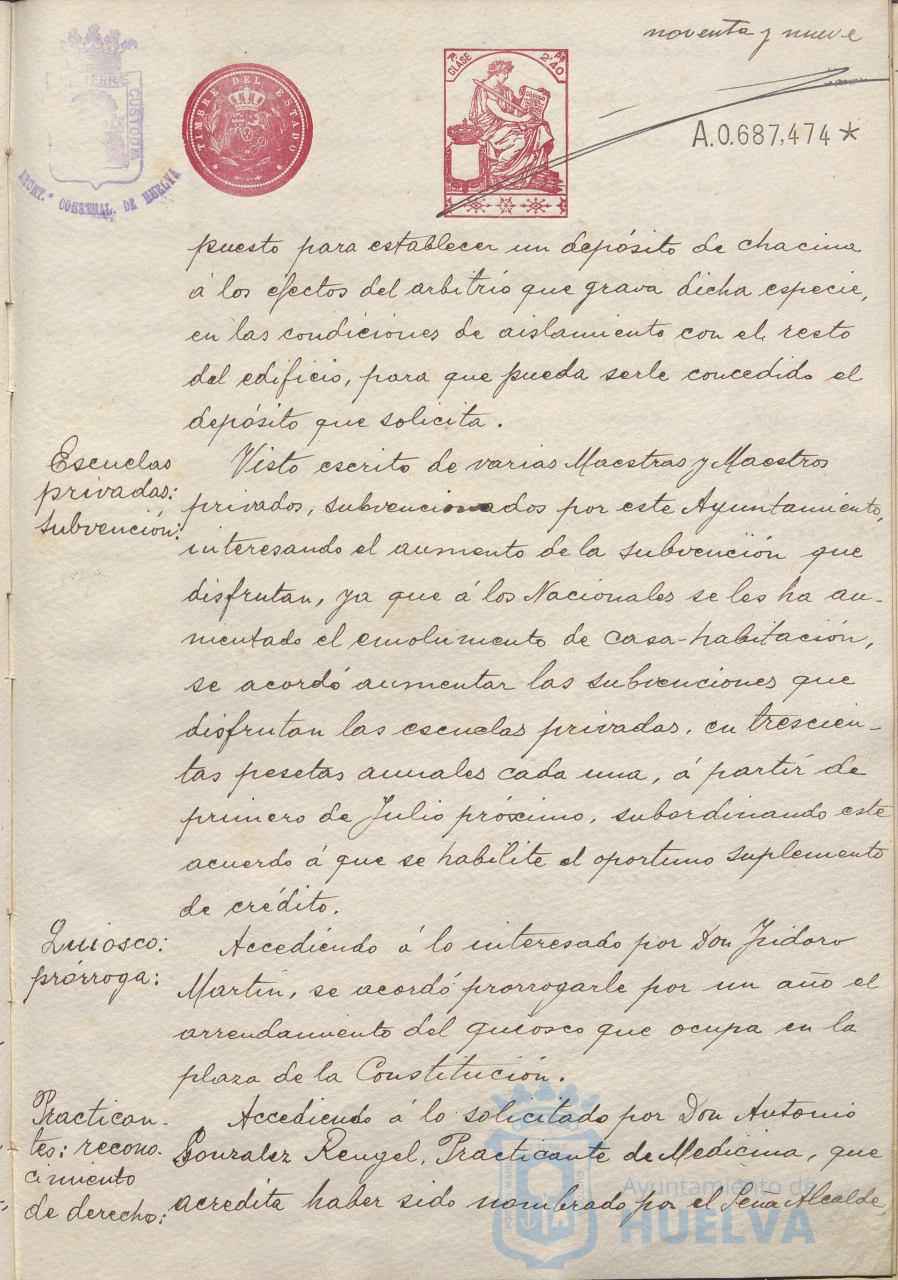 noventa y nueve
TERRÆ CUSTODIA
AYUNT.º CONSTNAL. DE HUELVA
TIMBRE DEL ESTADO
7ª CLASE
2'40
A.0.687,474*
puesto para establecer un depósito de chacina
á los efectos del arbitrio que grava dicha especie,
en las condiciones de aislamiento con el resto
del edificio, para que pueda serle concedido el
depósito que solicita.
Escuelas
privadas:
subvención:
Visto escrito de varias Maestras y Maestros
privados, subvencionados por este Ayuntamiento,
interesando el aumento de la subvención que
disfrutan, ya que á los Nacionales se les ha au-
mentado el emolumento de casa-habitación,
se acordó aumentar las subvenciones que
disfrutan las escuelas privadas, en trescien-
tas pesetas anuales cada una, á partir de
primero de Julio próximo, subordinando este
acuerdo á que se habilite el oportuno suplemento
de crédito.
Quiosco:
prórroga:
Accediendo á lo interesado por Don Isidoro
Martín, se acordó prorrogarle por un año el
arrendamiento del quiosco que ocupa en la
plaza de la Constitución.
Practican-
tes: recono-
cimiento
de derecho:
Accediendo á lo solicitado por Don Antonio
Gonzalez Rengel, Practicante de Medicina, que
acredita haber sido nombrado por el Señor Alcalde
Ayuntamiento de
HUELVA